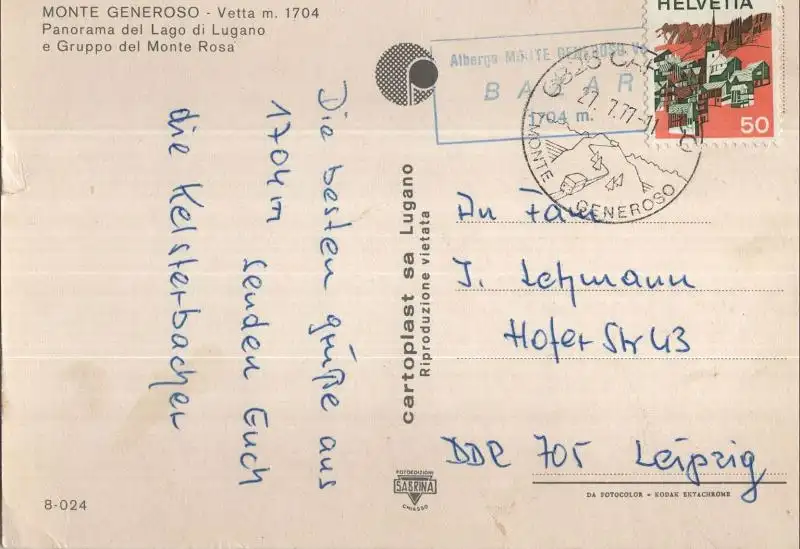 MONTE GENEROSO - Vetta m. 1704
Panorama del Lago di Lugano
e Gruppo del Monte Rosa
Die besten Grüße aus
1704m
senden Euch
die Kelsterbacher
8-024
cartoplast sa Lugano
Riproduzione vietata
FOTOEDIZIONI
SABRINA
CHIASSO
Albergo MONTE GENEROSO
BAZAR
1704 m.
7.77-11
MONTE GENEROSO
HELVETIA
50
An Fam
J. Lehmann
Hofer Str 43
DDR 705 Leipzig
DA FOTOCOLOR - KODAK EKTACHROME